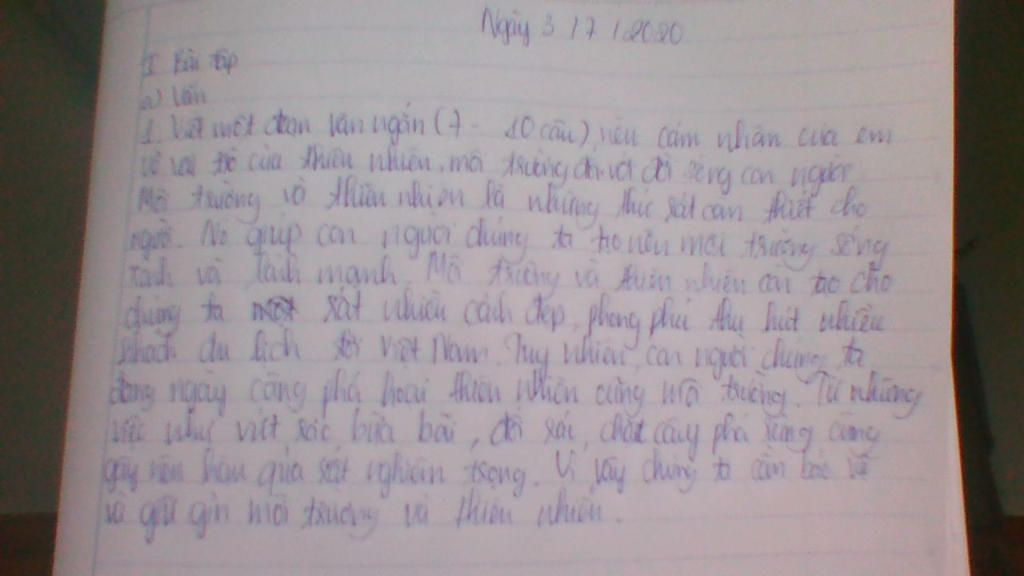 Ngày 3 / 7 / 2020
I Bài tập
a) Văn
1. Viết một đoạn văn ngắn (7 - 10 câu), nêu cảm nhân của em
về vai trò của thiên nhiên, môi trường đối với đời sống con người
Môi trường và thiên nhiên là những thứ rất cần thiết cho
người. Nó giúp con người chúng ta tạo nên môi trường sống
xanh và lành mạnh. Môi trường và thiên nhiên còn tạo cho
chúng ta rất nhiều cảnh đẹp, phong phú thu hút nhiều
khách du lịch tới Việt Nam. Tuy nhiên, con người chúng ta
đang ngày càng phá hoại thiên nhiên cùng môi trường. Từ những
việc như vứt rác bừa bãi, đốt rác, chặt cây phá rừng cũng
gây nên hậu quả rất nghiêm trọng. Vì vậy chúng ta cần bảo vệ
và giữ gìn môi trường và thiên nhiên.